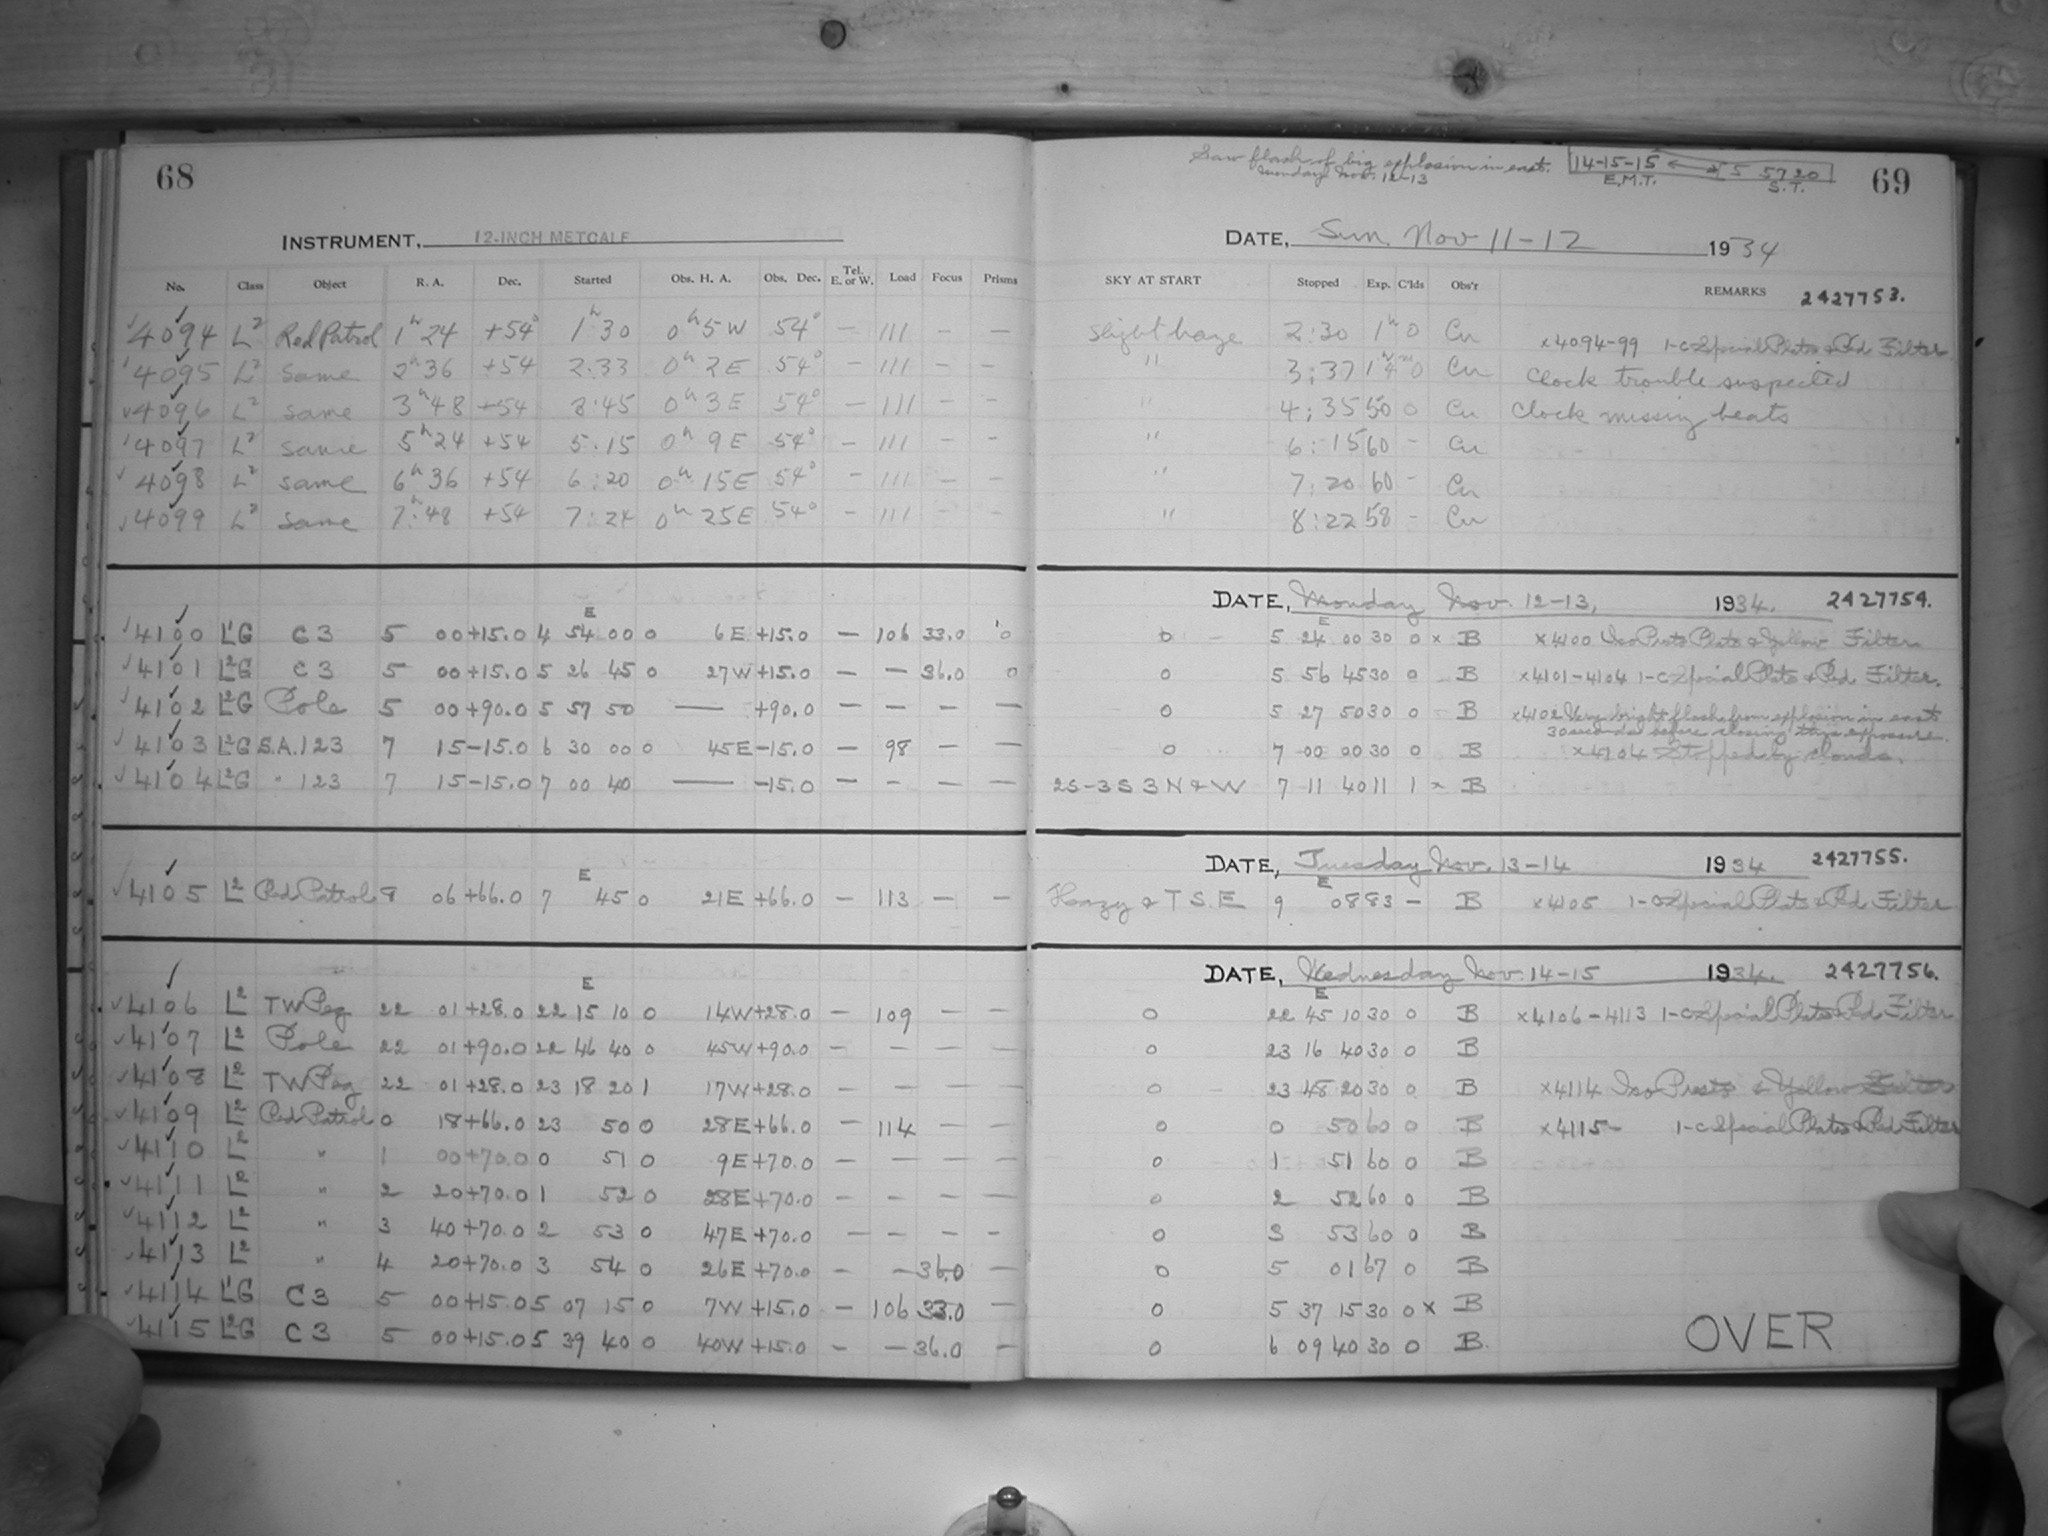 68
INSTRUMENT, 12-INCH METCALF
No. Class Object R. A. Dec. Started Obs. H. A. Obs. Dec. Tel. E. or W. Load Focus Prisms
4094 L² Red Patrol 1ʰ 24 +54° 1ʰ 30 0ʰ 5 W 54° — 111 — —
4095 L² Same 2ʰ 36 +54 2:33 0ʰ 2 E 54° — 111 — —
4096 L² same 3ʰ 48 +54 3:45 0ʰ 3 E 54° — 111 — —
4097 L² same 5ʰ 24 +54 5:15 0ʰ 9 E 54° — 111 — —
4098 L² same 6ʰ 36 +54 6:20 0ʰ 15 E 54° — 111 — —
4099 L² Same 7ʰ 48 +54 7:24 0ʰ 25 E 54° — 111 — —
E
4100 L'G C 3 5 00 +15.0 4 54 00 0 6 E +15.0 — 106 33.0 0
4101 L²G C 3 5 00 +15.0 5 26 45 0 27 W +15.0 — — 36.0 0
4102 L²G Pole 5 00 +90.0 5 57 50 — +90.0 — — — —
4103 L²G S.A. 123 7 15 -15.0 6 30 00 0 45 E -15.0 — 98 — —
4104 L²G " 123 7 15 -15.0 7 00 40 — -15.0 — — — —
E
4105 L² Red Patrol 8 06 +66.0 7 45 0 21 E +66.0 — 113 — —
E
4106 L² TW Peg 22 01 +28.0 22 15 10 0 14 W +28.0 — 109 — —
4107 L² Pole 22 01 +90.0 22 46 40 0 45 W +90.0 — — — —
4108 L² TW Peg 22 01 +28.0 23 18 20 1 17 W +28.0 — — — —
4109 L² Red Patrol 0 18 +66.0 23 50 0 28 E +66.0 — 114 — —
4110 L² " 1 00 +70.0 0 51 0 9 E +70.0 — — — —
4111 L² " 2 20 +70.0 1 52 0 28 E +70.0 — — — —
4112 L² " 3 40 +70.0 2 53 0 47 E +70.0 — — — —
4113 L² " 4 20 +70.0 3 54 0 26 E +70.0 — — 36.0 —
4114 L'G C 3 5 00 +15.0 5 07 15 0 7 W +15.0 — 106 33.0 —
4115 L²G C 3 5 00 +15.0 5 39 40 0 40 W +15.0 — — 36.0 —
Saw flash of big explosion in east.
Monday Nov. 12-13
14-15-15 ← 5 57 20
E.M.T. S.T.
69
DATE, Sun. Nov 11-12 1934
SKY AT START Stopped Exp. C'lds Obs'r REMARKS 2427753.
Slight haze 2:30 1ʰ 0 Cu x4094-99 1-C Special Plate & Red Filter
" 3:37 1ʰ 4ᵐ 0 Cu Clock trouble suspected
" 4:35 50 0 Cu Clock missing beats
" 6:15 60 - Cu
" 7:20 60 - Cu
" 8:22 58 - Cu
DATE, Monday Nov. 12-13, 1934. 2427754.
E
0 5 24 00 30 0 x B x4100 Iso Presto Plate & Yellow Filter
0 5 56 45 30 0 B x4101-4104 1-C Special Plate & Red Filter.
0 5 27 50 30 0 B x4102 Very bright flash from explosion in east
30 seconds before closing this exposure.
0 7 00 00 30 0 B x4104 Stopped by clouds.
2S-3S 3N & W 7 11 40 11 1 x B
DATE, Tuesday Nov. 13-14 1934 2427755.
E
Hazy & T S.E 9 08 83 — B x4105 1-C Special Plate & Red Filter
DATE, Wednesday Nov. 14-15 1934. 2427756.
E
0 22 45 10 30 0 B x4106-4113 1-C Special Plate & Red Filter
0 23 16 40 30 0 B
0 23 48 20 30 0 B x4114 Iso Presto & Yellow Filter
0 0 50 60 0 B x4115- 1-C Special Plate & Red Filter
0 1 51 60 0 B
0 2 52 60 0 B
0 3 53 60 0 B
0 5 01 67 0 B
0 5 37 15 30 0 x B
0 6 09 40 30 0 B.
OVER